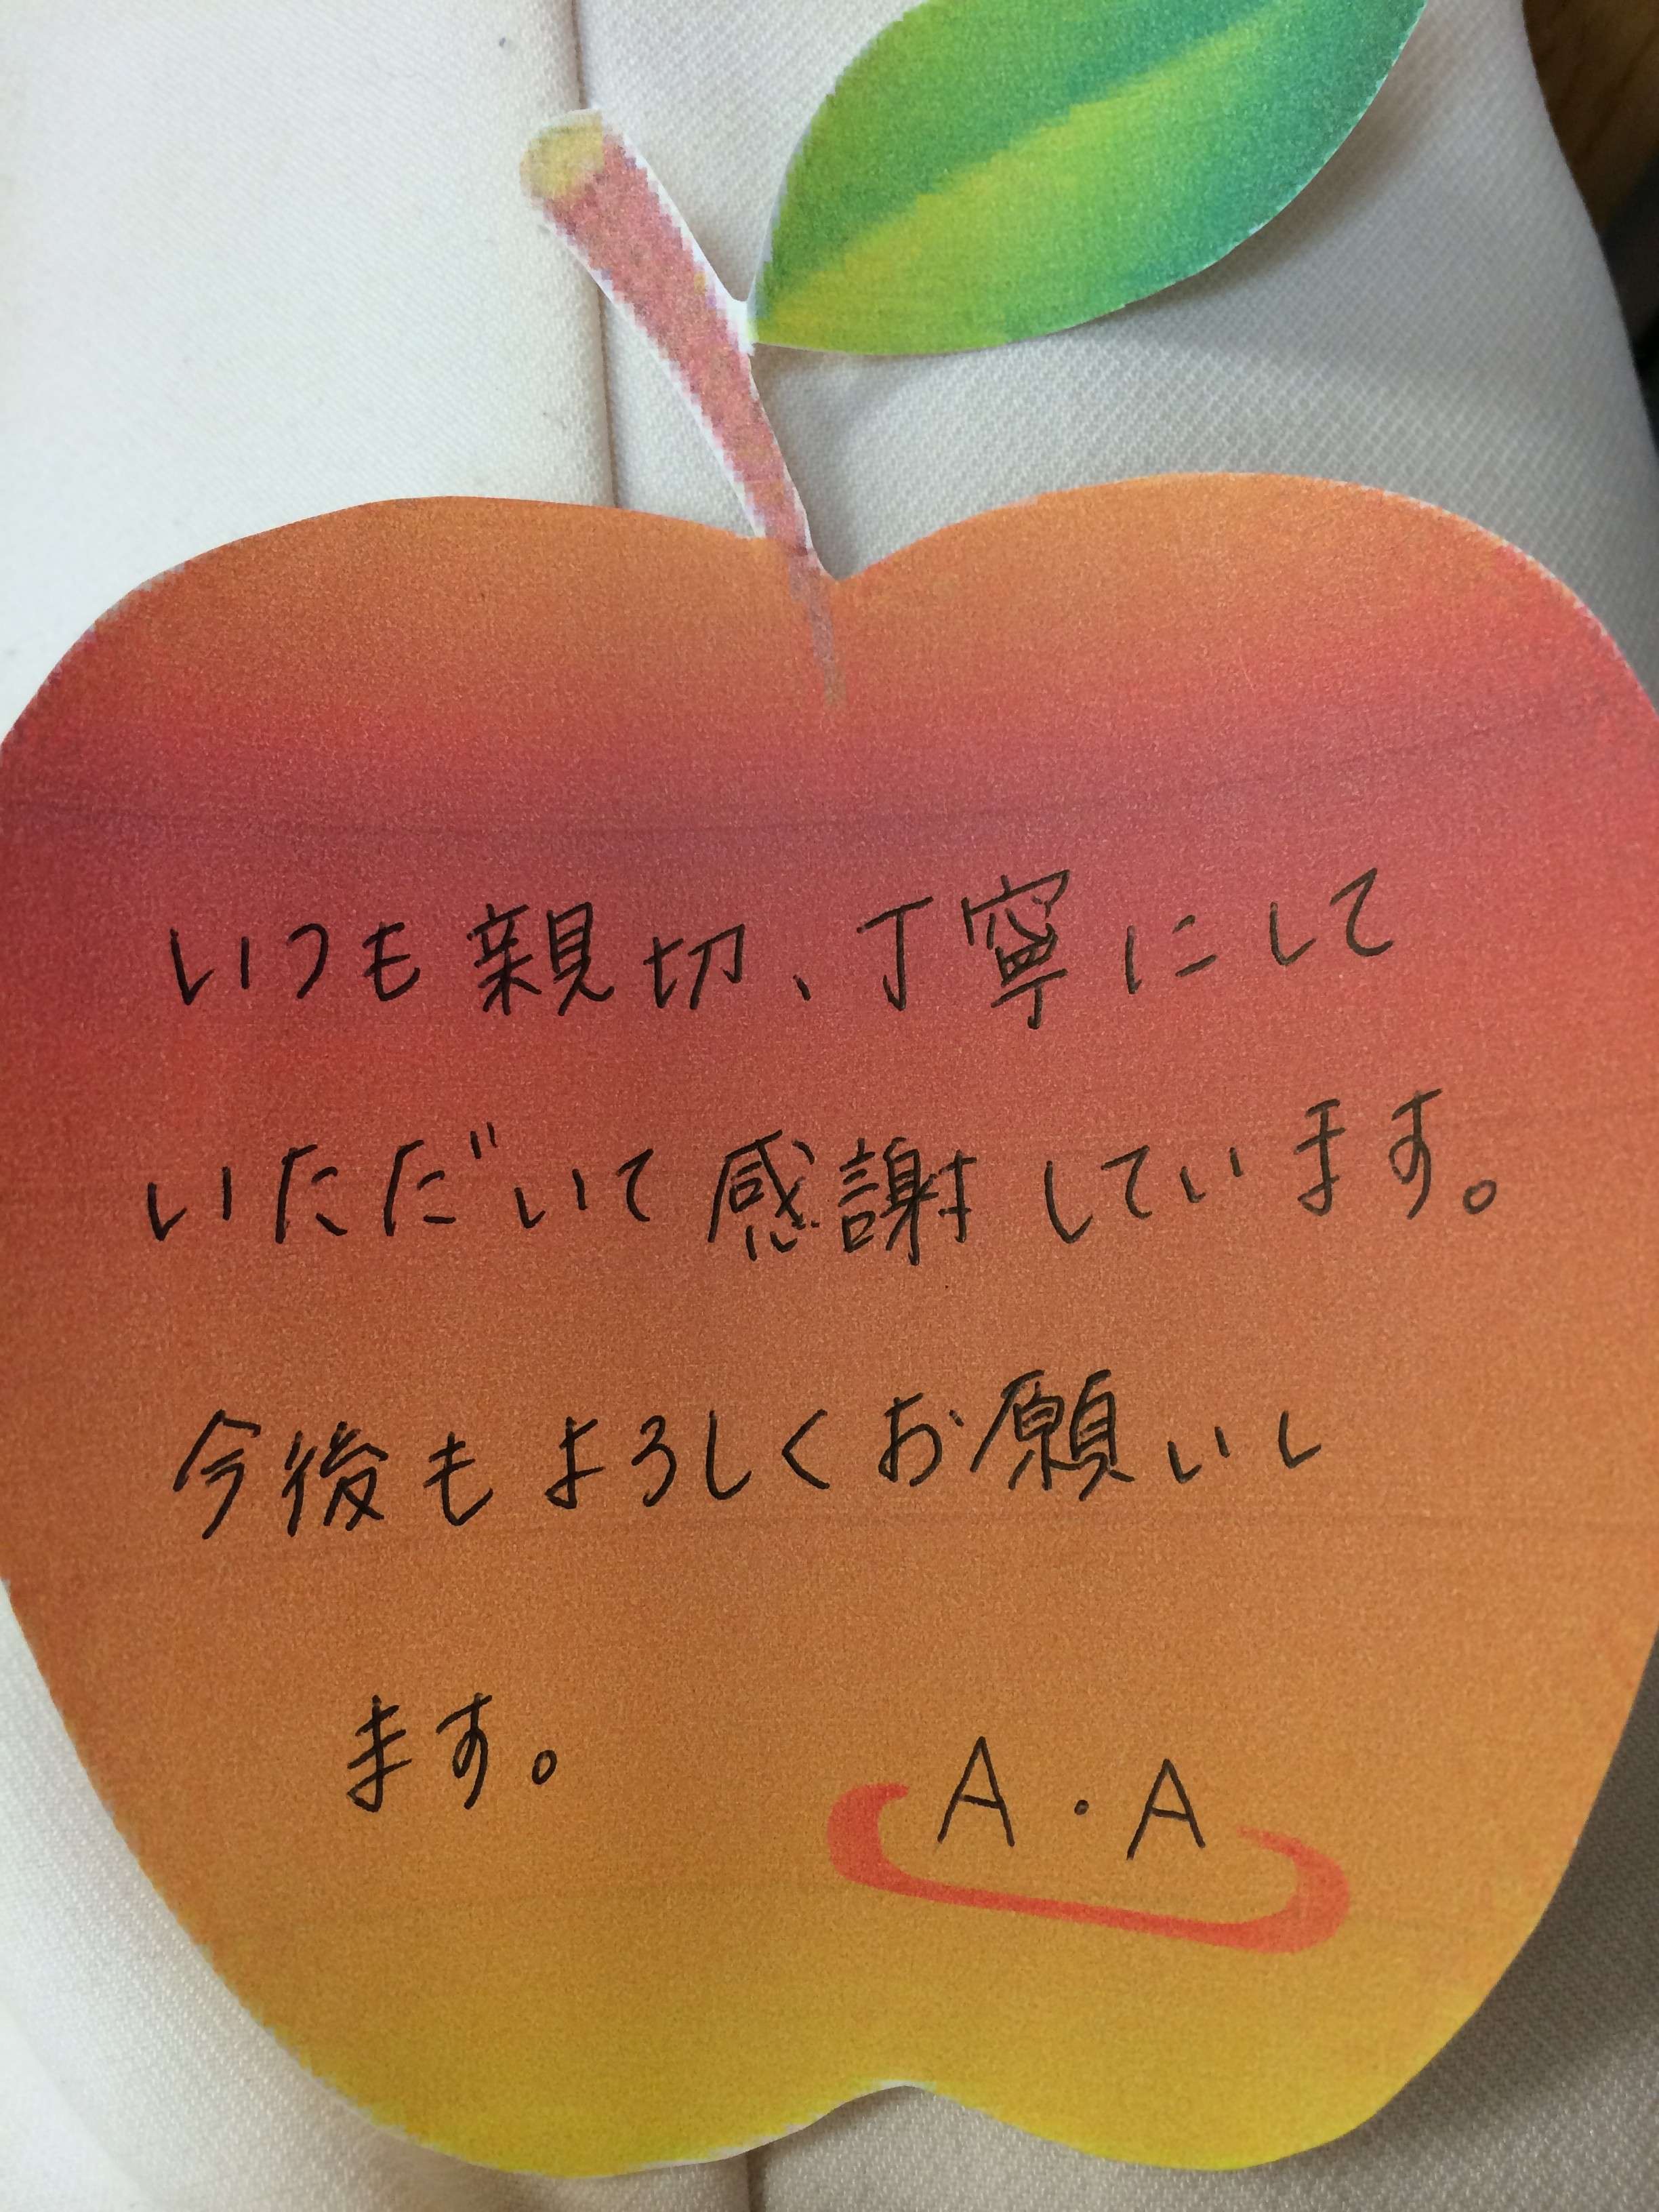 いつも親切、丁寧にして
いただいて感謝しています。
今後もよろしくお願いし
ます。
A・A